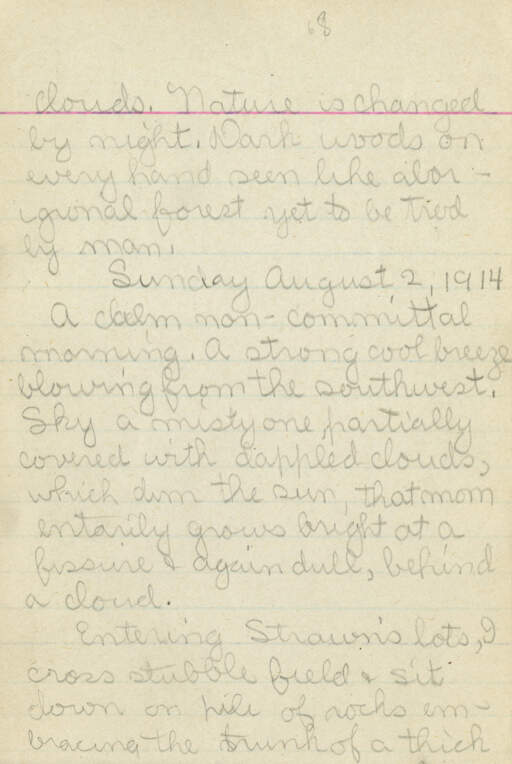 68
clouds. Nature is changed
by night. Dark woods on
every hand seen like abor-
iginal forest yet to be trod
by man.
Sunday August 2, 1914
A calm non-committal
morning. A strong cool breeze
blowing from the southwest.
Sky a misty one partially
covered with dappled clouds,
which dim the sun, that mom
entarily grows bright at a
fissure & again dull, behind
a cloud.
Entering Strawn's lots, I
cross stubble field & sit
down on pile of rocks em-
bracing the trunk of a thick